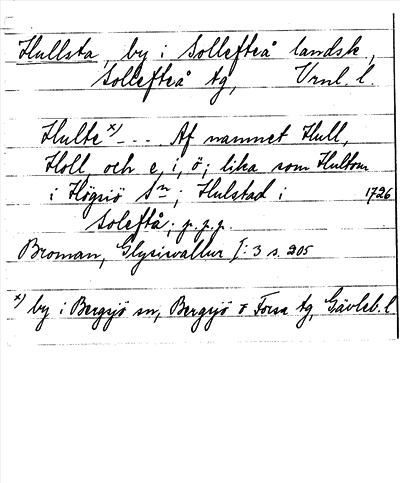 Hullsta, by i Sollefteå landsk.,
Sollefteå tg, Vrnl. l.
Hulte x) - . . . Af namnet Hull,
Holl, och e, i, ö; lika som Hultom
i Högsiö Sn; Hulstad i 1726
Soleftå; p.p.p.
Broman, Glysisvallur I: 3 s. 205
x) by i Bergsjö sn, Bergsjö o Forsa tg, Gävleb. l